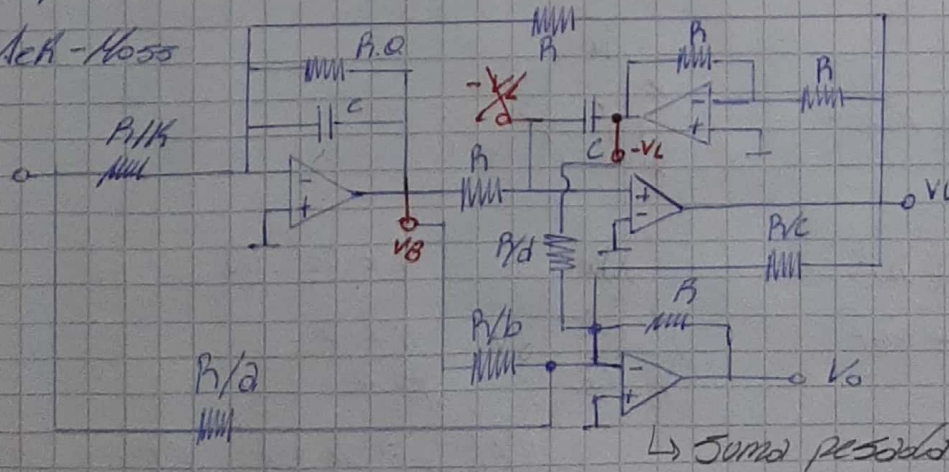 AcK-Moss
R.Q
R
C
R/K
R
R
-VL
C
-VL
R
VL
VB
R/d
R/c
R
R/b
R/a
Vo
↳ Suma pesada